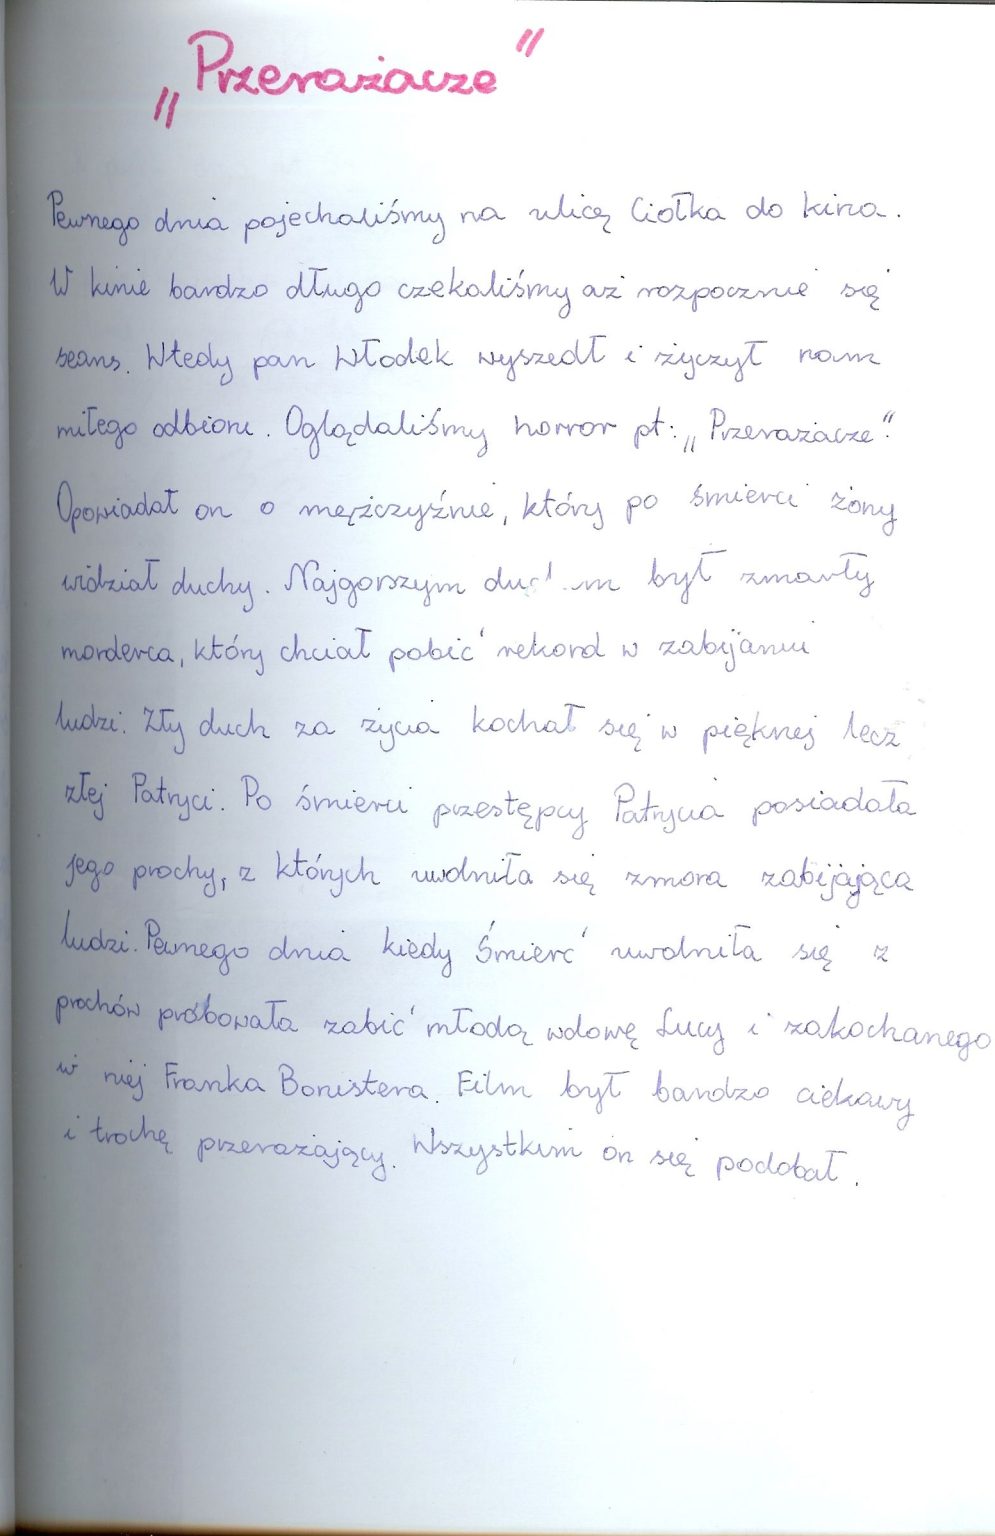 „Przerażacze"
Pewnego dnia pojechaliśmy na ulicę Ciołka do kina.
W kinie bardzo długo czekaliśmy aż rozpocznie się
seans. Wtedy pan Włodek wyszedł i życzył nam
miłego odbioru. Oglądaliśmy horror pt: „Przerażacze".
Opowiadał on o mężczyźnie, który po śmierci żony
widział duchy. Najgorszym duchem był zmarły
morderca, który chciał pobić rekord w zabijaniu
ludzi. Zły duch za życia kochał się w pięknej lecz
złej Patrycji. Po śmierci przestępcy Patrycja posiadała
jego prochy, z których uwolniła się zmora zabijająca
ludzi. Pewnego dnia kiedy Śmierć uwolniła się z
prochów próbowała zabić młodą wdowę Lucy i zakochanego
w niej Franka Bonistera. Film był bardzo ciekawy
i trochę przerażający. Wszystkim on się podobał.